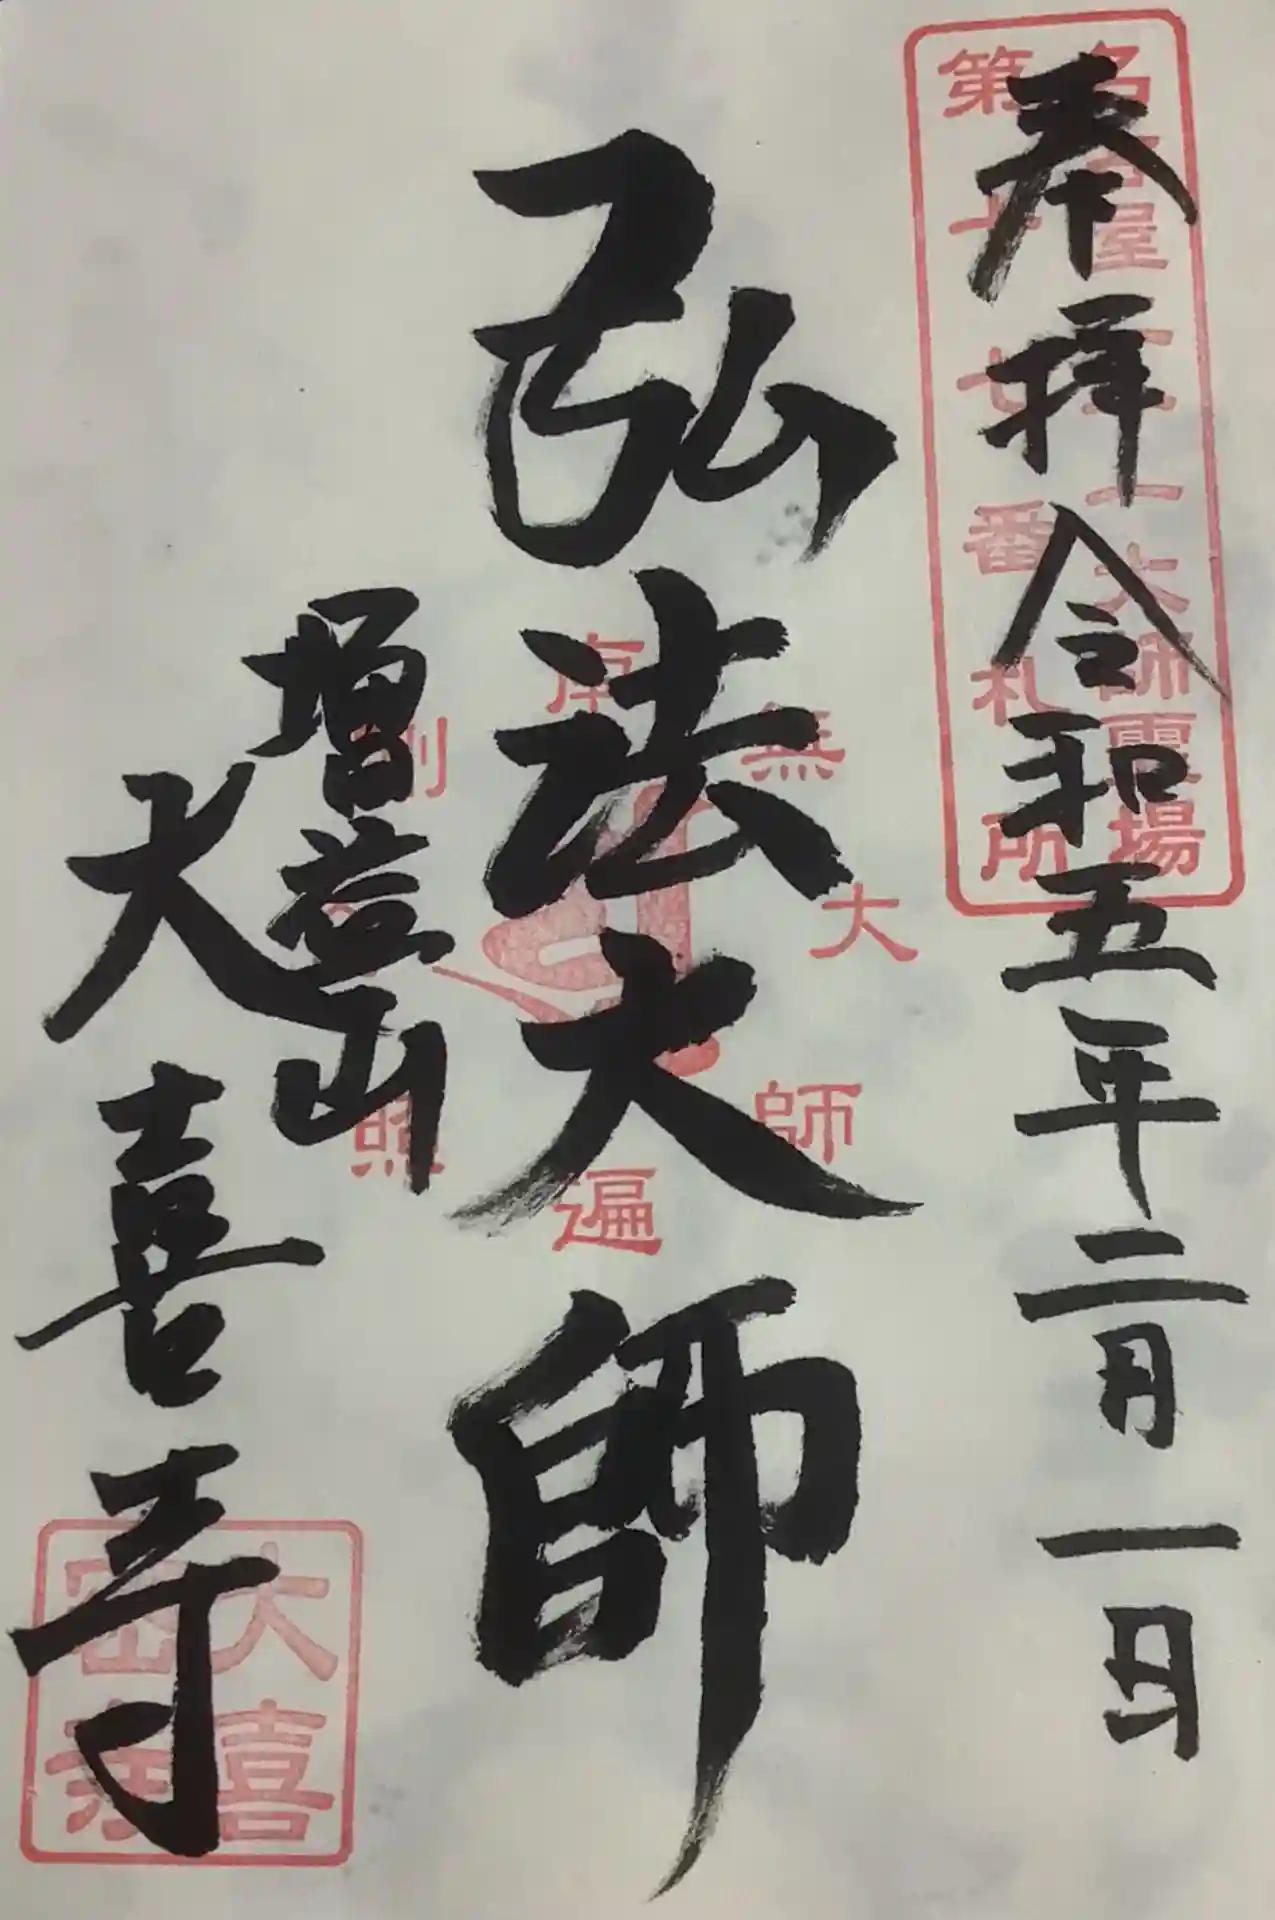 奉拝令和五年二月一日
名古屋二十一大師霊場
第十七番札所
弘法大師
南無大師遍照金剛
増益山
大喜寺
大喜